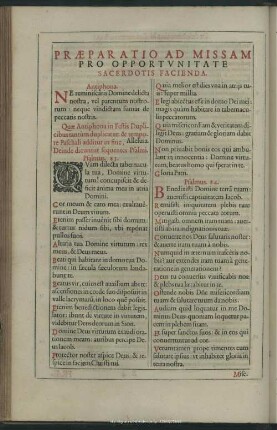 PRÆPARATIO AD MISSAM
PRO OPPORTVNITATE
SACERDOTIS FACIENDA.
Antiphona.
NE reminiscaris Domine delicta
nostra, vel parentum nostro-
rum: neque vindictam sumas de
peccatis nostris.
Quæ Antiphona in Festis Dupli-
cibus tantum duplicatur & tempo-
re Paschali additur in fine, Alleluia.
Deinde dicuntur sequentes Psalmi.
Psalmus. 83.
QVam dilecta taberna-
la tua, Domine virtu-
tum! concupiscit & de-
ficit anima mea in atria
Domini.
Cor meum & caro mea: exultaue-
runt in Deum viuum.
Etenim passer inuenit sibi domum:
& turtur nidum sibi, vbi ponat
pullos suos.
Altaria tua Domine virtutum: rex
meus, & Deus meus.
Beati qui habitant in domo tua Do-
mine: in sæcula sæculorum lauda-
bunt te.
Beatus vir, cuius est auxilium abs te:
ascensiones in corde suo disposuit in
valle lacrymarum, in loco quem posuit.
Etenim benedictionem dabit legis-
lator: ibunt de virtute in virtutem,
videbitur Deus deorum in Sion.
Domine Deus virtutum exaudi ora-
tionem meam: auribus percipe De-
us Iacob.
Protector noster aspice Deus, & re-
spice in faciem Christi tui.
Quia melior est dies vna in atrijs tu-
is: super millia.
Elegi abiectus esse in domo Dei mei:
magis quam habitare in tabernacu-
lis peccatorum.
Quia misericordiam & veritatem di-
ligit Deus: gratiam & gloriam dabit
Dominus.
Non priuabit bonis eos qui ambu-
lant in innocentia: Domine virtu-
tum, beatus homo qui sperat in te.
Gloria Patri.
Psalmus. 84.
BEnedixisti Domine terram tuam:
auertisti captiuitatem Iacob.
Remisisti iniquitatem plebis tuæ:
operuisti omnia peccata eorum.
Mitigasti omnem iram tuam: auer-
tisti ab ira indignationis tuæ.
Conuerte nos Deus salutaris noster:
& auerte iram tuam à nobis.
Numquid in æternum irasceris no-
bis? aut extendes iram tuam à gene-
ratione in generationem?
Deus tu conuersus viuificabis nos:
& plebs tua lætabitur in te.
Ostende nobis Domine misericordiam
tuam: & salutare tuum da nobis.
Audiam quid loquatur in me Do-
minus Deus: quoniam loquetur pa-
cem in plebem suam.
Et super sanctos suos, & in eos qui
conuertuntur ad cor.
Verumtamen prope timentes eum
salutare ipsius: vt inhabitet gloria in
terra nostra.
Mise-